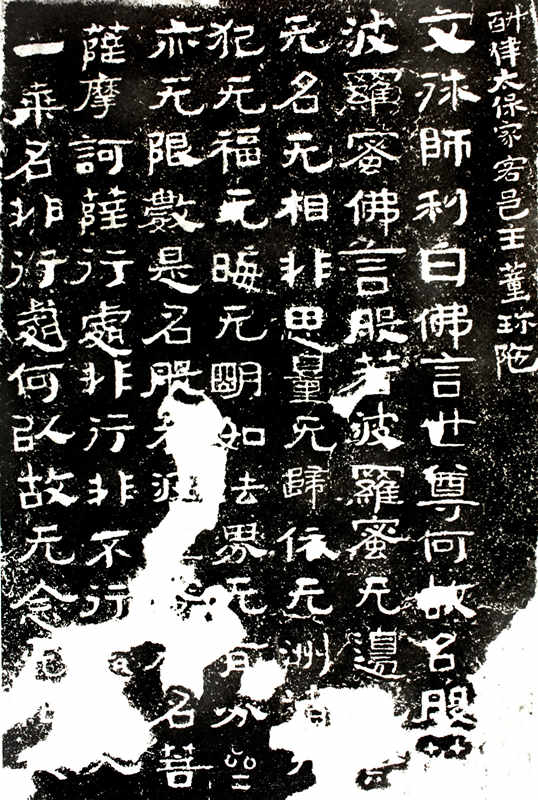 斛律太保家客邑主董珍陀
文殊師利白佛言世尊何故名般
波羅蜜佛言般若波羅蜜无邊
无名无相非思量无歸依无洲渚
犯无福无晦无明如法界无有分齊
亦无限數是名般若波名菩
薩摩訶薩行處非行非不行入
一乘名非行處何以故无念无